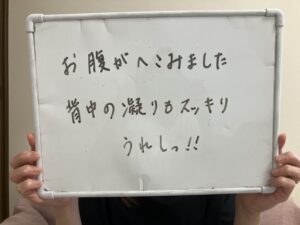 お腹がへこみました
背中の凝りもスッキリ
うれしっ!!